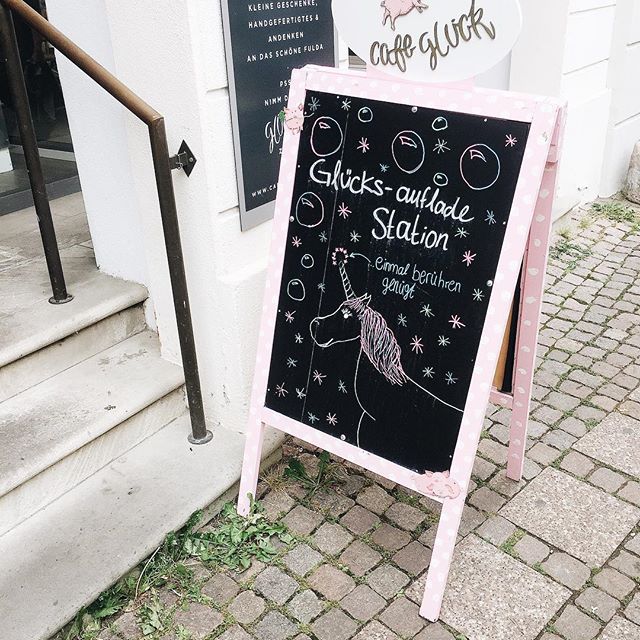 KLEINE GESCHENKE,
HANDGEFERTIGTES &
ANDENKEN
AN DAS SCHÖNE FULDA
NIMM
café glück
Glücks-auflade
Station
einmal berühren
genügt